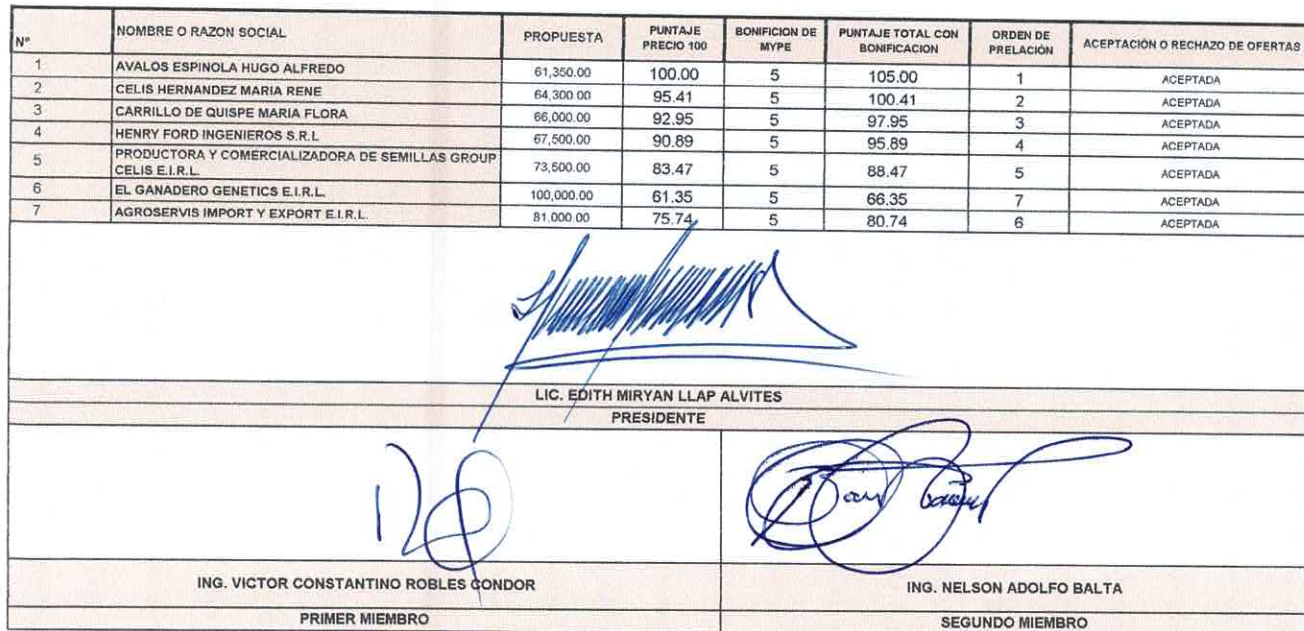 N° NOMBRE O RAZON SOCIAL PROPUESTA PUNTAJE PRECIO 100 BONIFICION DE MYPE PUNTAJE TOTAL CON BONIFICACION ORDEN DE PRELACIÓN ACEPTACIÓN O RECHAZO DE OFERTAS
1 AVALOS ESPINOLA HUGO ALFREDO 61,350.00 100.00 5 105.00 1 ACEPTADA
2 CELIS HERNANDEZ MARIA RENE 64,300.00 95.41 5 100.41 2 ACEPTADA
3 CARRILLO DE QUISPE MARIA FLORA 66,000.00 92.95 5 97.95 3 ACEPTADA
4 HENRY FORD INGENIEROS S.R.L 67,500.00 90.89 5 95.89 4 ACEPTADA
5 PRODUCTORA Y COMERCIALIZADORA DE SEMILLAS GROUP CELIS E.I.R.L. 73,500.00 83.47 5 88.47 5 ACEPTADA
6 EL GANADERO GENETICS E.I.R.L. 100,000.00 61.35 5 66.35 7 ACEPTADA
7 AGROSERVIS IMPORT Y EXPORT E.I.R.L. 81,000.00 75.74 5 80.74 6 ACEPTADA
LIC. EDITH MIRYAN LLAP ALVITES
PRESIDENTE
ING. VICTOR CONSTANTINO ROBLES CONDOR ING. NELSON ADOLFO BALTA
PRIMER MIEMBRO SEGUNDO MIEMBRO